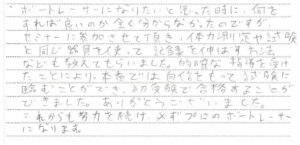 ボートレーサーになりたいと思った時に、何を
すれば良いのか全く分からなかったのですが、
セミナーに参加させて頂き、体力測定や試験
と同じ器具を使って記録を伸ばす方法
なども教えてもらいました。的確な指導を受け
たことにより、本番では自信をもって試験に
臨むことができ、初受験で合格することが
できました。ありがとうございました。
これからも努力を続け、必ずプロのボートレーサー
になります。